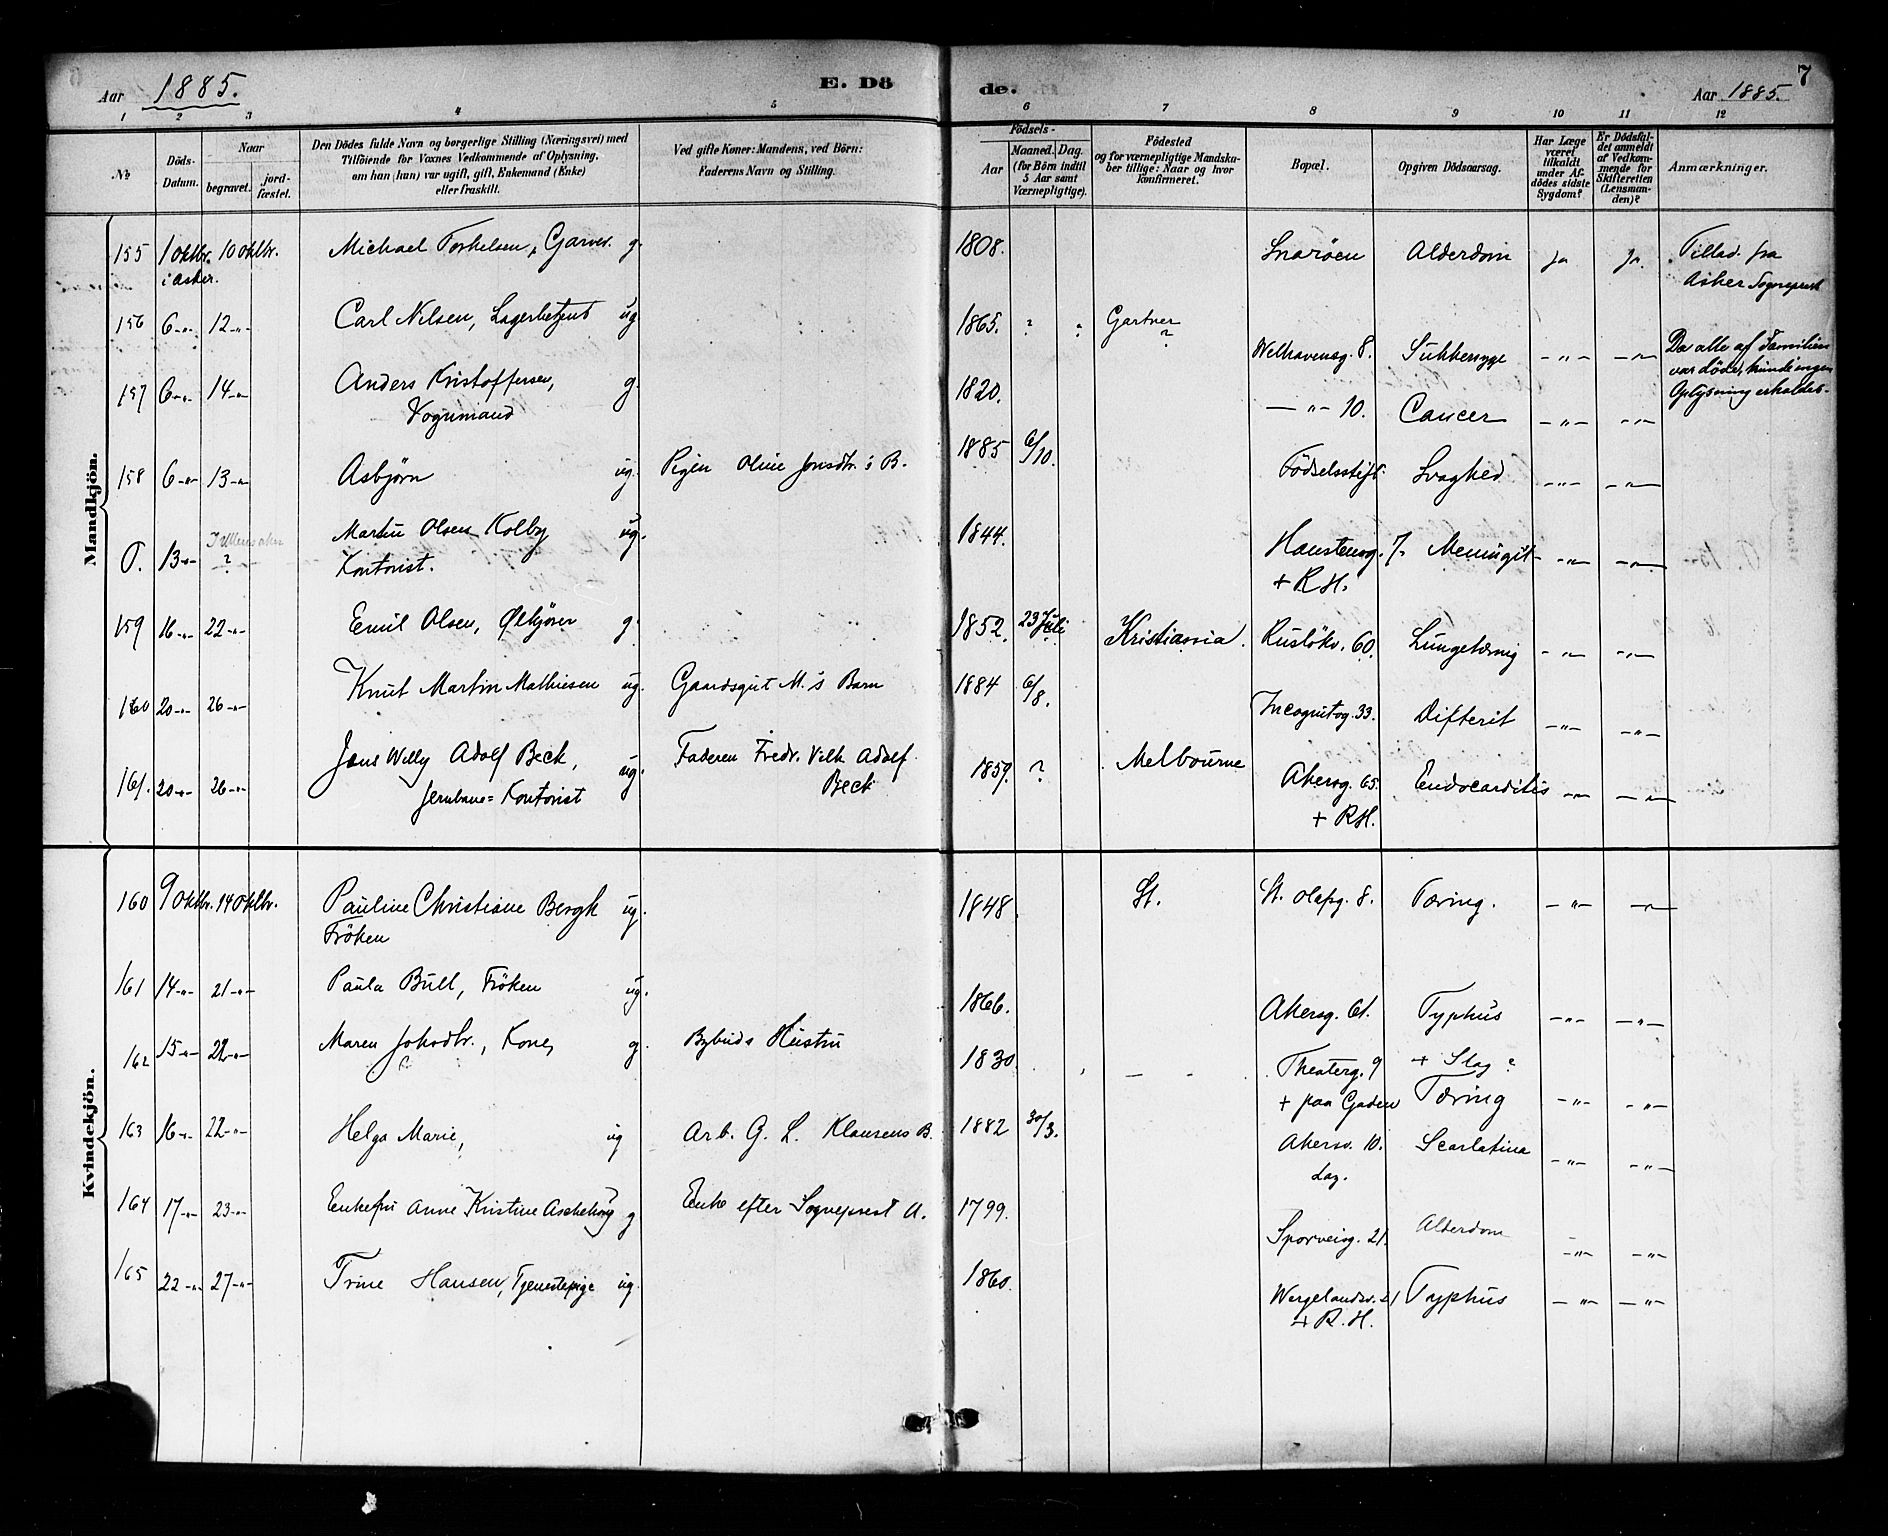 Aar 1885.
E. Döde.
7
Aar 1885.
1 2 3 4 5 6 7 8 9 10 11 12
№
Döds-Datum.
Naar
begravet.
jord-fæstet.
Den Dödes fulde Navn og borgerlige Stilling (Næringsvei) med
Tilföiende for Voxnes Vedkommende af Oplysning,
om han (hun) var ugift, gift, Enkemand (Enke)
eller fraskilt.
Ved gifte Koner: Mandens, ved Börn:
Faderens Navn og Stilling.
Födsels-
Aar
Maaned. Dag.
(for Börn indtil
5 Aar samt
Værnepligtige).
Födested
og for værnepligtige Mandska-
ber tillige: Naar og hvor
konfirmeret.
Bopæl.
Opgiven Dödsaarsag.
Har Læge
været
tilkaldt
under Af-
dödes sidste
Sygdom?
Er Dödsfal-
det anmeldt
af Vedkom-
mende for
Skifteretten
(Lensman-
den)?
Anmærkninger.
Mandkjön.
155 1 oktbr. 10 oktbr. Michael Torkelsen, Garver. g. 1808. Snaröen Alderdom ja ja. Tillad. fra
i Asker. Asker Sogneprest
156 6 -"- 12 -"- Carl Nilsen, Lagerbetjent ug 1865. ? : Gartner
? Welhavensg. 8. Sukkersyge -"- -"- Da alle af Familien
var döde, kunde ingen
Oplysning erholdes.
157 6 -"- 14 -"- Anders Kristoffersen, g. 1820. -"- 10. Cancer -"- -"-
Vognmand
158 6 -"- 13 -"- Asbjörn ug. Pigen Oline Jonsdtr.'s B. 1885 6/10. Födselsstift. Svaghed -"- -"-
0. 13 -"- ? Martin Olsen Kolby ug. 1844. Hanstensg. 7. Meningit -"- -"-
Kontorist. + R.H.
159 16 -"- 22 -"- Emil Olsen, Ölkjörer g. 1852. 23 Juli Kristiania. Ruslökv. 60. Lungetæring -"- -"-
160 20 -"- 26 -"- Knut Martin Mathiesen ug. Gaardsgut M.'s Barn 1884 6/8. Incognitog. 33. Difterit -"- -"-
161. 20 -"- 26 -"- Jens Willy Adolf Beck, ug. Faderen Fredr. Vilh. Adolf 1859. ? Melbourne Akersg. 65. Endocarditis -"- -"-
Jernbane= Kontorist Beck + R.H.
Kvindekjön.
160 9 oktbr. 14 oktbr. Pauline Christiane Bergh ug. 1848. St. St. Olafsg. 8. Tæring. -"- -"-
Fröken
161 14 -"- 21 -"- Paula Bull, Fröken ug. 1866. Akersg. 61. Typhus -"- -"-
162 15 -"- 22 -"- Maren Johsdtr., Kone, g. Bybuds Hustru 1830. Theaterg. 9 + Slag ?
+ paa Gaden Tæring -"- -"-
163 16 -"- 22 -"- Helga Marie, ug Arb. G. L. Klausens B. 1882 30/3. Akersv. 10. Scarlatina -"- -"-
164 17 -"- 23 -"- Enkefru Anne Kristine Aschehoug g Enke efter Sogneprest A. 1799. Sporveisg. 21. Alderdom -"- -"-
165 22 -"- 27 -"- Trine Hansen, Tjenestepige ug. 1860. Wergelandsv. 21 Typhus -"- -"-
+ R.H.